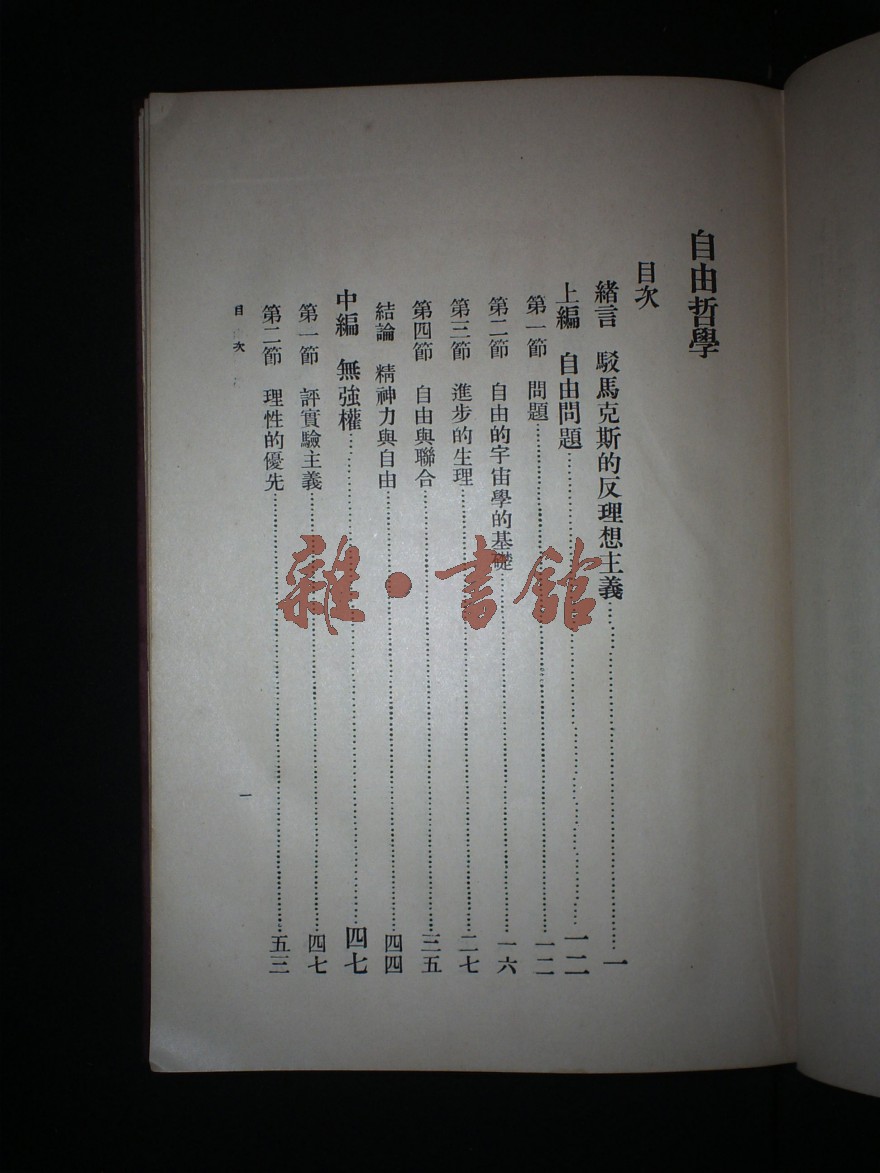 自由哲學
目次
緒言 駁馬克斯的反理想主義……一
上編 自由問題……一二
第一節 問題……一二
第二節 自由的宇宙學的基礎……一六
第三節 進步的生理……二七
第四節 自由與聯合……三五
結論 精神力與自由……四四
中編 無強權……四七
第一節 評實驗主義……四七
第二節 理性的優先……五三
目次
一
雜·書館